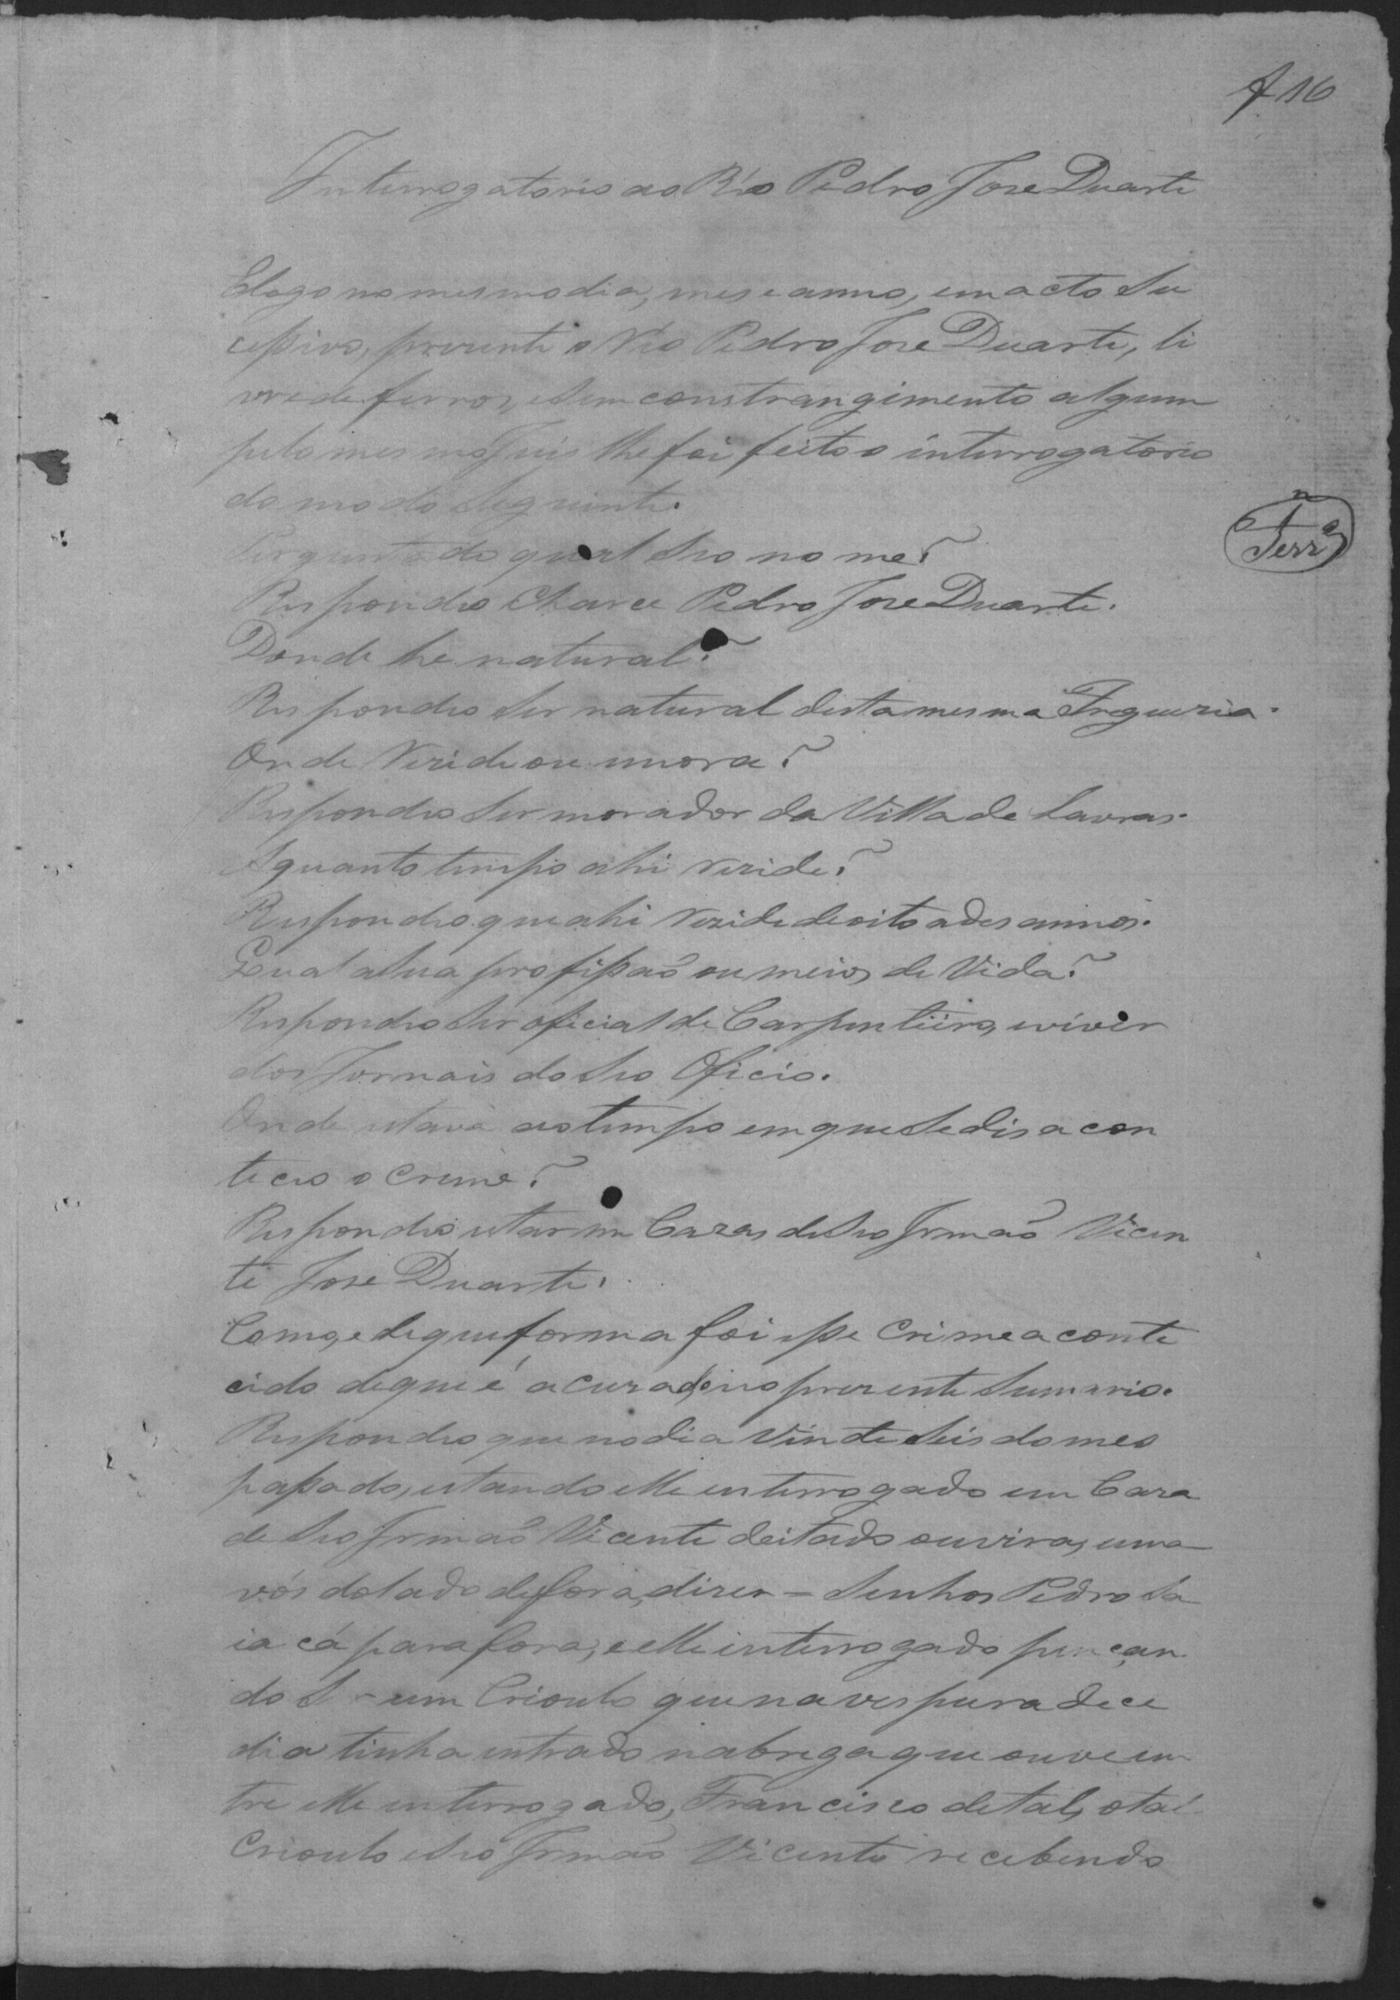 f 16
Interrogatorio ao Réo Pedro Jose Duarte
E logo no mesmo dia, mes e anno, em acto Su
cessivo, prezente o Réo Pedro Jose Duarte, li
vre de ferros, e Sem constrangimento algum
pelo mesmo Juis lhe foi feito o interrogatorio
do modo Seguinte.
Ferrª
Perguntado qual Seo nome?
Respondeo chamar Pedro Jose Duarte.
Donde he natural?
Respondeo Ser natural desta mesma Freguezia.
Onde Rezide ou mora?
Respondeo Ser morador da Villa de Lavras.
A quanto tempo ahi rezide?
Respondeo que ahi rezide de oito a des annos.
Qual a Sua profissaõ ou meios de Vida?
Respondeo Ser oficial de Carpenteiro, e viver
dos Jornais do Seo Oficio.
Onde estava ao tempo em que Se dis a con
teceo o crime?
Respondeo estar em Cazas de Seo Irmaõ Vicen
te Jose Duarte.
Como, e de que forma foi esse Crime aconte
cido de que é acuzado no prezente Sumario.
Respondeo que no dia Vinte Seis do mes
passado, estando elle enterrogado em Caza
de Seo Irmaõ Vicente deitado ouvira, uma
vós do lado de fora, dizer = Senhor Pedro Sa
ia cá para fora, e elle interrogado pençan
do Ser um Crioulo que na vespura dece
dia tinha entrado na briga que ouve en
tre elle enterrogado, Francisco de tal, o tal
Crioulo e Seo Irmaõ Vicente recebendo